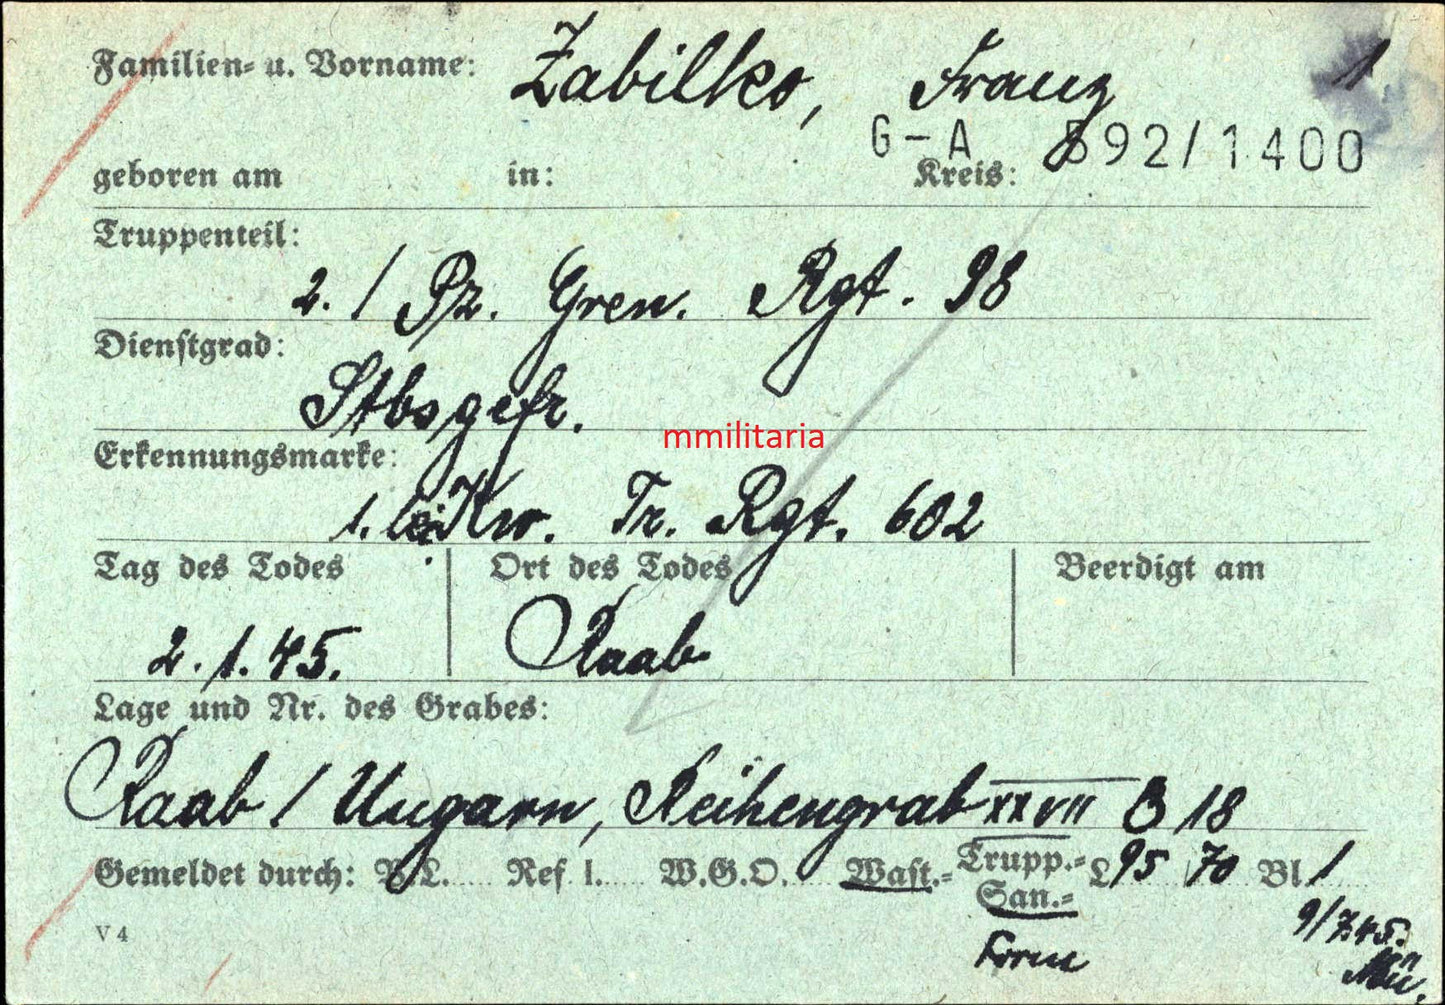 Familien- u. Vorname: Zabilko, Franz 1
G-A 592/1400
geboren am in: Kreis:
Truppenteil:
2. / Pz. Gren. Rgt. 98
Dienstgrad:
Stbsgefr.
mmilitaria
Erkennungsmarke:
1. lei. Kw. Tr. Rgt. 602
Tag des Todes Ort des Todes Beerdigt am
2.1.45. Raab
Lage und Nr. des Grabes:
Raab / Ungarn, Reihengrab XXVII B 18
Gemeldet durch: V.L. Ref 1. W.G.O. Wast.- Trupp.- L 95 70 Bl 1
San.-
V 4
Form
9/7.45.